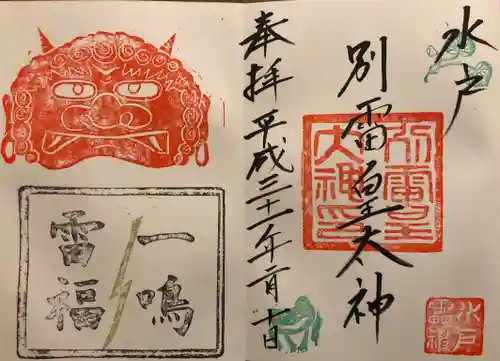 水戸
別雷皇太神
奉拝 平成三十一年二月十日
別雷皇
大神印
水戸
一鳴
雷福